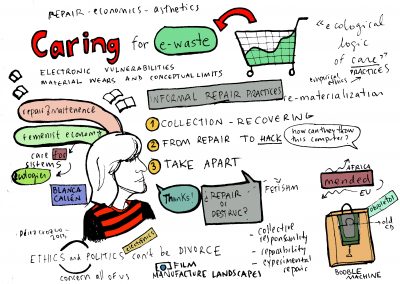 REPAIR - economics - asthetics
Caring for e-waste
ELECTRONIC VULNERABILITIES
MATERIAL WEARS AND CONCEPTUAL LIMITS
"ecological
logic
of care"
PRACTICES
empirical
ethics
INFORMAL REPAIR PRACTICES
re-materialization
repair & maitenence
feminist economy
care for
sistems
ecologies
BLANCA
CALLÉN
1 COLLECTION - RECOVERING
2 FROM REPAIR TO HACK
how can they throw
this computer?
3 TAKE APART
Thanks!
¿REPAIR
OR
DESTRUC?
FETISHM
AFRICA
mended
EU
obsolete!
old
CD
BOOBLE
MACHINE
2013
economics
ETHICS and POLITICS can't be DIVORCE
concern all of us
FILM
MANUFACTURE LANDSCAPES
- collective
responsability
- reparability
- experimental
repair